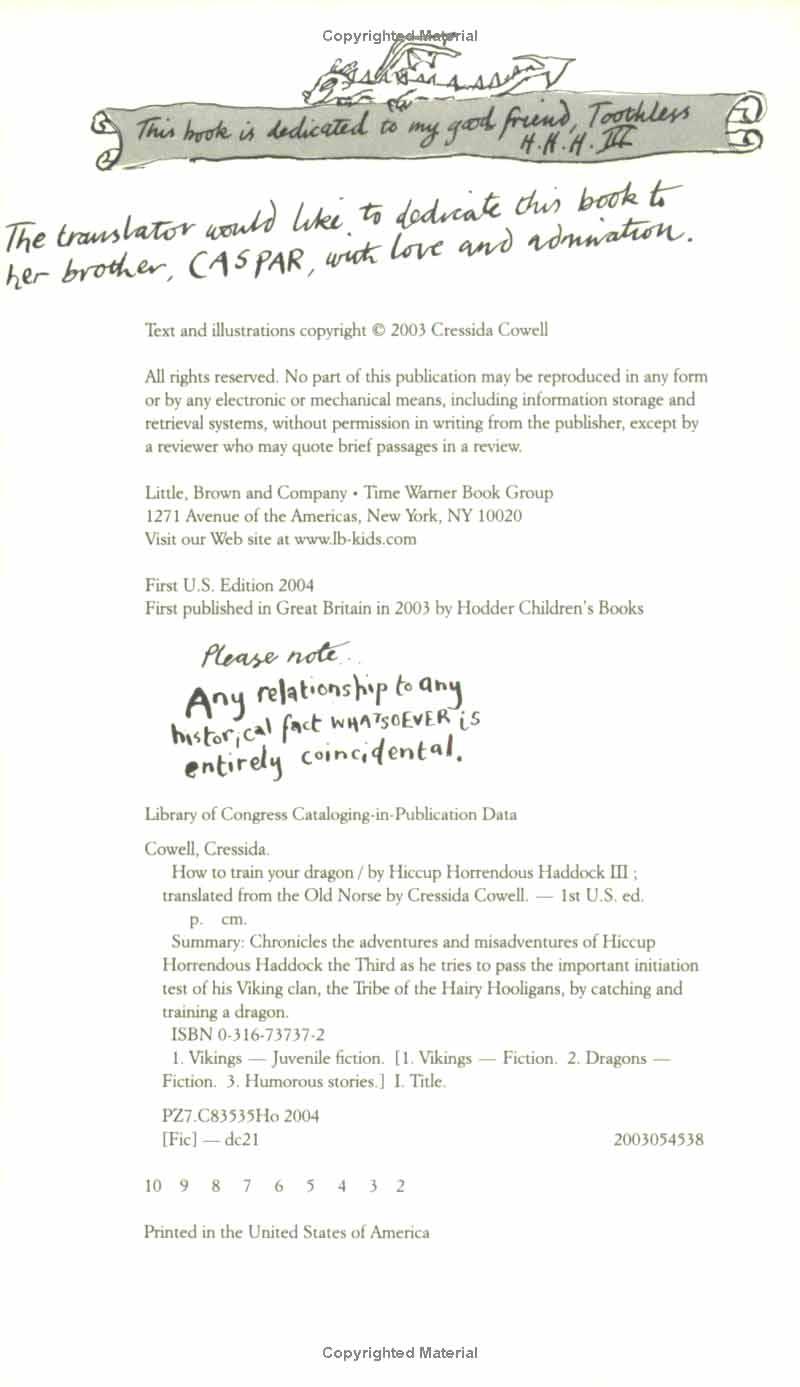 Copyrighted Material
This book is dedicated to my good friend, Toothless
H.H.H. III
The translator would like to dedicate this book to
her brother, CASPAR, with love and admiration.
Text and illustrations copyright © 2003 Cressida Cowell
All rights reserved. No part of this publication may be reproduced in any form
or by any electronic or mechanical means, including information storage and
retrieval systems, without permission in writing from the publisher, except by
a reviewer who may quote brief passages in a review.
Little, Brown and Company • Time Warner Book Group
1271 Avenue of the Americas, New York, NY 10020
Visit our Web site at www.lb-kids.com
First U.S. Edition 2004
First published in Great Britain in 2003 by Hodder Children's Books
Please note...
Any relationship to any
historical fact WHATSOEVER is
entirely coincidental.
Library of Congress Cataloging-in-Publication Data
Cowell, Cressida.
How to train your dragon / by Hiccup Horrendous Haddock III ;
translated from the Old Norse by Cressida Cowell. — 1st U.S. ed.
p. cm.
Summary: Chronicles the adventures and misadventures of Hiccup
Horrendous Haddock the Third as he tries to pass the important initiation
test of his Viking clan, the Tribe of the Hairy Hooligans, by catching and
training a dragon.
ISBN 0-316-73737-2
1. Vikings — Juvenile fiction. [1. Vikings — Fiction. 2. Dragons —
Fiction. 3. Humorous stories.] I. Title.
PZ7.C83535Ho 2004
[Fic] — dc21 2003054538
10 9 8 7 6 5 4 3 2
Printed in the United States of America
Copyrighted Material